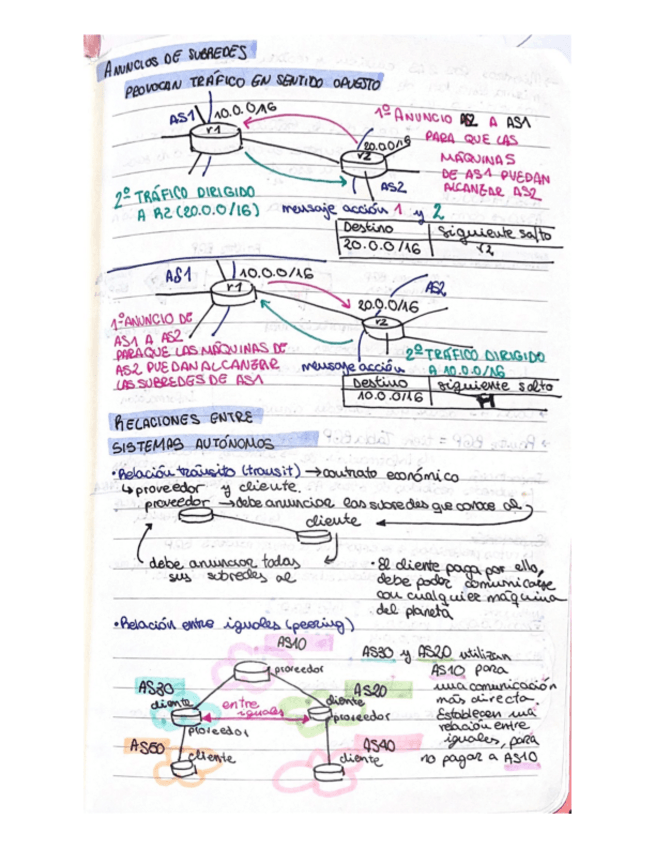 ANUNCIOS DE SUBREDES
PROVOCAN TRÁFICO EN SENTIDO OPUESTO
AS1
10.0.0/16
r1
20.0.0/16
r2
AS2
1º ANUNCIO AS2 A AS1
PARA QUE LAS
MÁQUINAS
DE AS1 PUEDAN
ALCANZAR AS2
2º TRÁFICO DIRIGIDO
A R2 (20.0.0/16)
mensaje acción 1 y 2
Destino siguiente salto
20.0.0/16 r2
AS1
10.0.0/16
r1
AS2
20.0.0/16
r2
1º ANUNCIO DE
AS1 A AS2
PARA QUE LAS MÁQUINAS DE
AS2 PUEDAN ALCANZAR
LAS SUBREDES DE AS1
2º TRÁFICO DIRIGIDO
A 10.0.0/16
mensaje acción
Destino siguiente salto
10.0.0/16
RELACIONES ENTRE
SISTEMAS AUTÓNOMOS
• Relación tránsito (transit) → contrato económico
↳ proveedor y cliente.
proveedor → debe anunciar las subredes que conoce al
cliente
debe anunciar todas
sus subredes al
• El cliente paga por ello,
debe poder comunicarse
con cualquier máquina
del planeta
• Relación entre iguales (peering)
AS10
proveedor
AS30
cliente
proveedor
entre
iguales
AS20
cliente
proveedor
AS50
cliente
AS40
cliente
AS30 y AS20 utilizan
AS10 para
una comunicación
más directa.
Establecen una
relación entre
iguales, para
no pagar a AS10